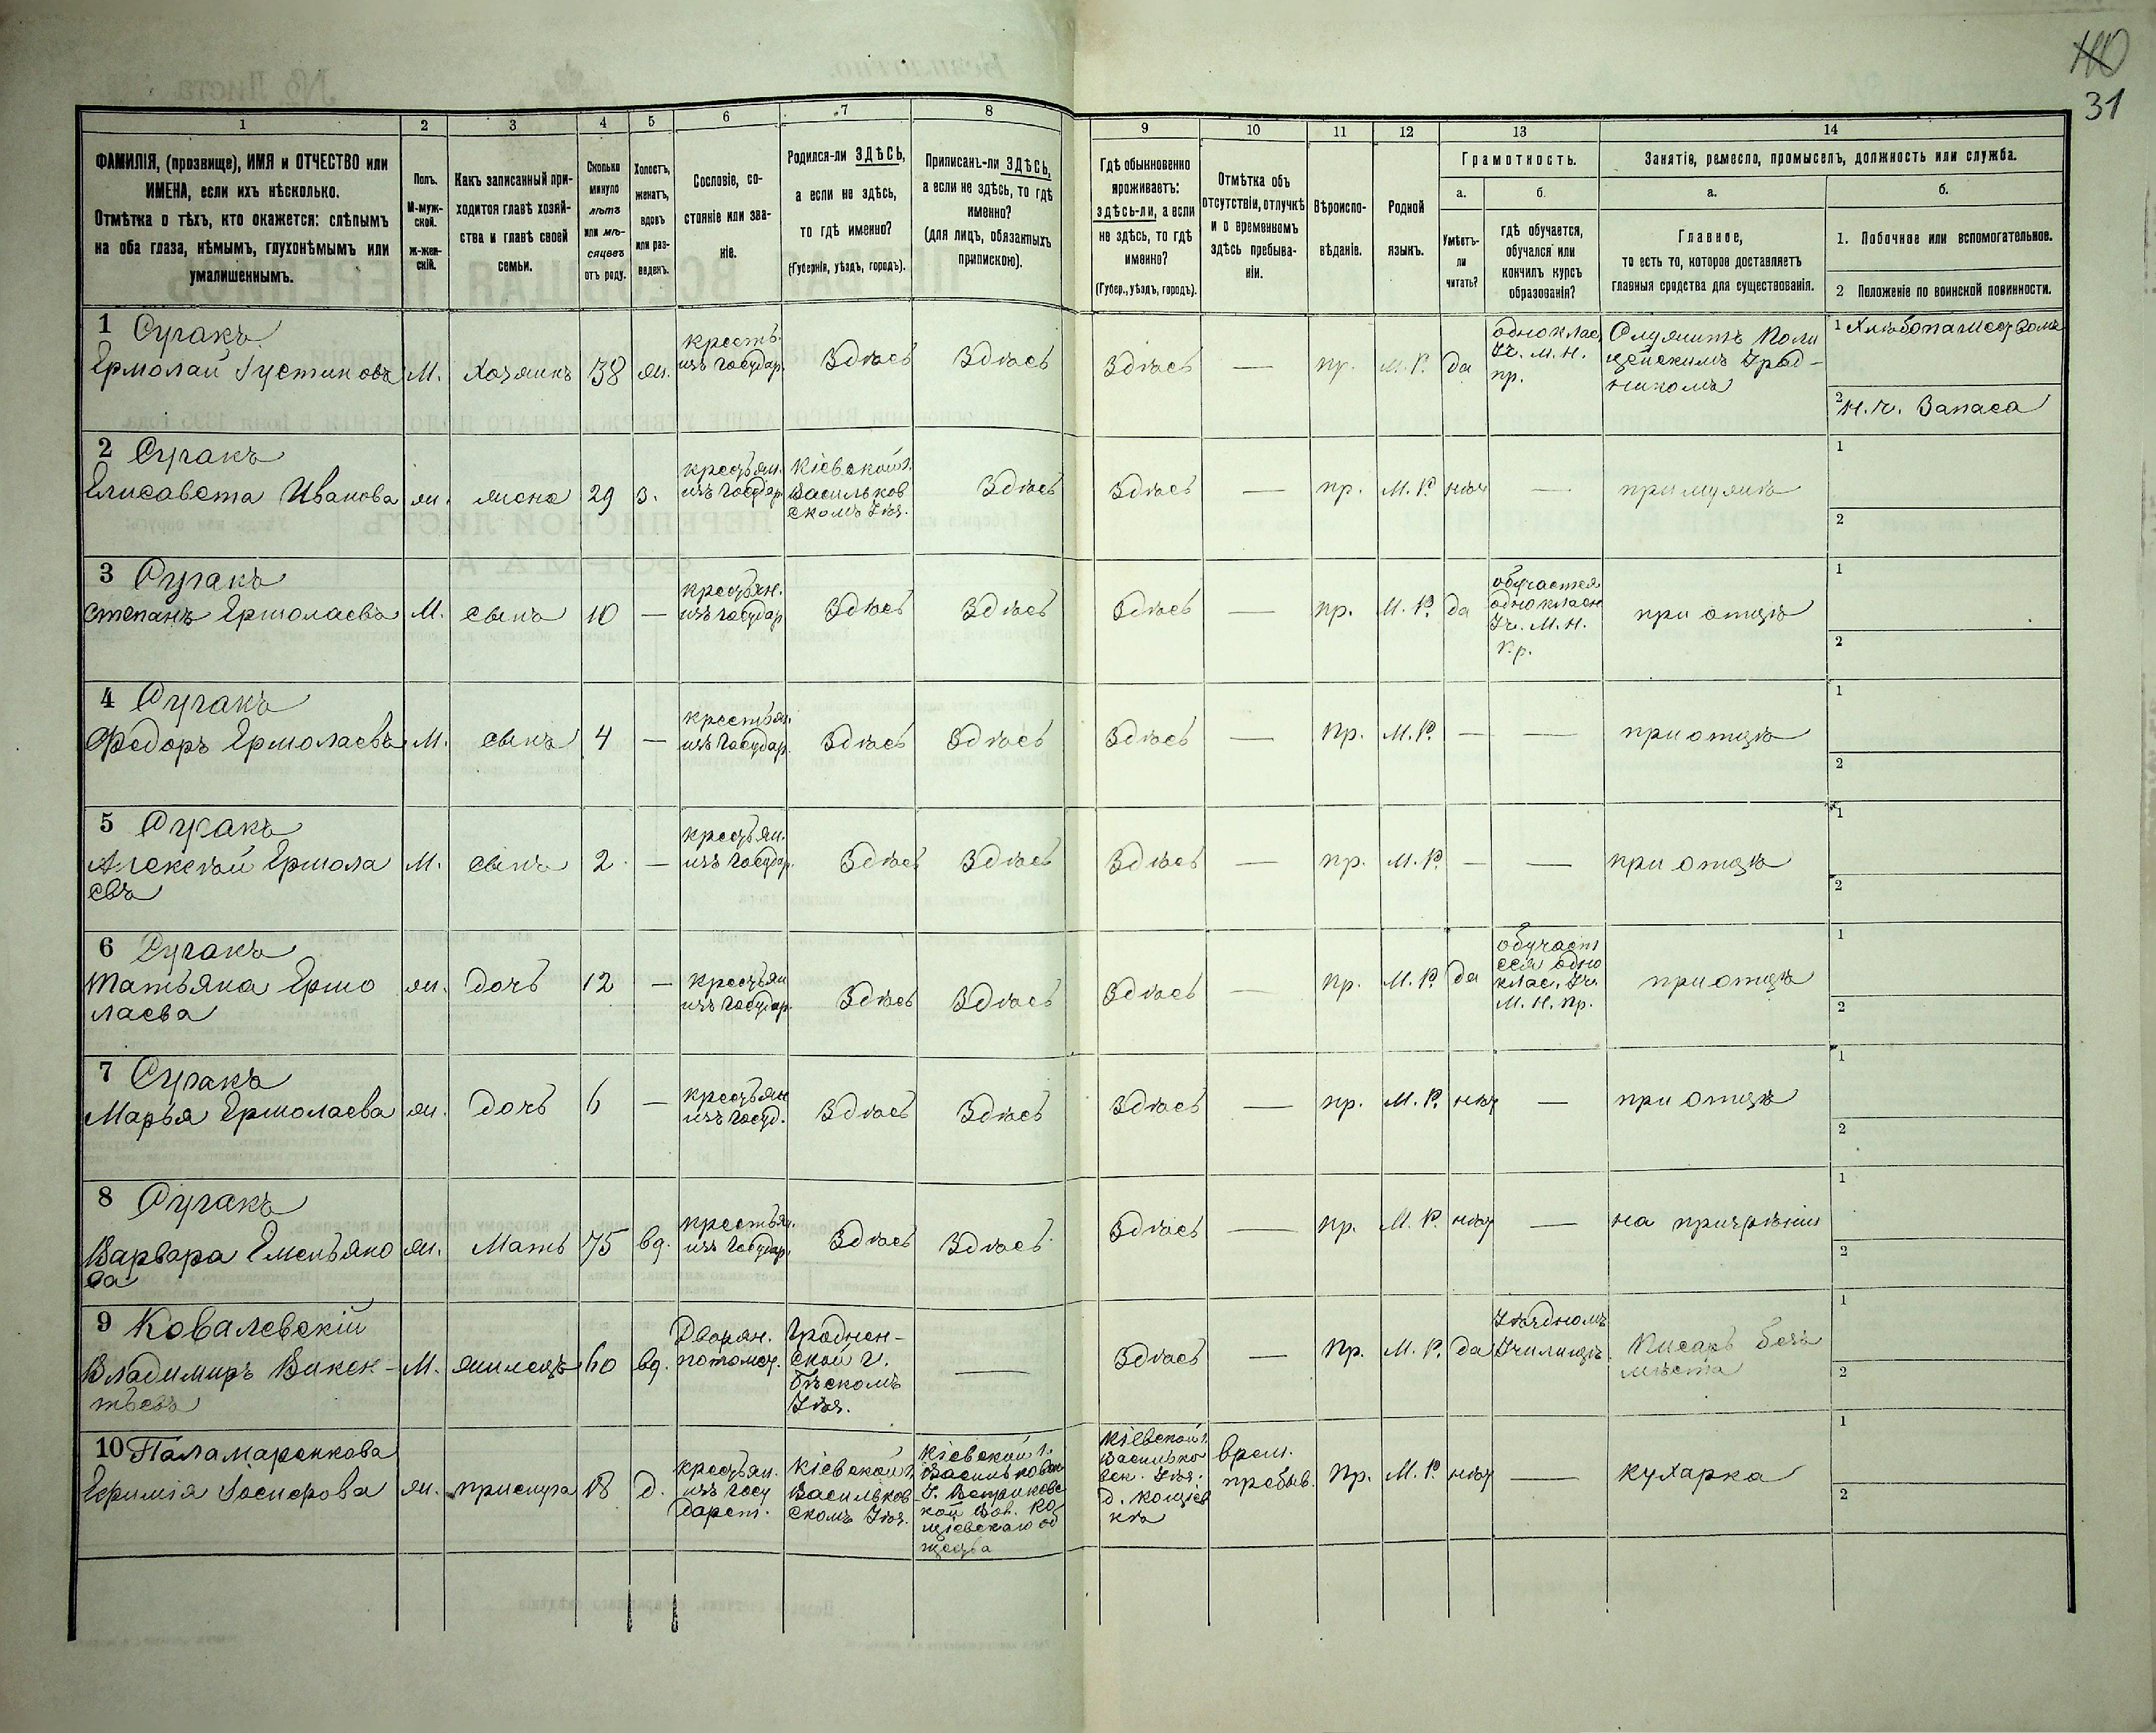 31
1 2 3 4 5 6 7 8 9 10 11 12 13 14
ФАМИЛІЯ, (прозвище), ИМЯ и ОТЧЕСТВО или
ИМЕНА, если ихъ нѣсколько.
Отмѣтка о тѣхъ, кто окажется: слѣпымъ
на оба глаза, нѣмымъ, глухонѣмымъ или
умалишеннымъ.
Полъ.
М-муж-
ской.
ж-жен-
скій.
Какъ записанный при-
ходится главѣ хозяй-
ства и главѣ своей
семьи.
Сколько
минуло
лѣтъ
или мѣ-
сяцевъ
отъ роду.
Холостъ,
женатъ,
вдовъ
или раз-
веденъ.
Сословіе, со-
стояніе или зва-
ніе.
Родился-ли ЗДѢСЬ,
а если не здѣсь,
то гдѣ именно?
(Губернія, уѣздъ, городъ).
Приписанъ-ли ЗДѢСЬ,
а если не здѣсь, то гдѣ
именно?
(для лицъ, обязанныхъ
припискою).
Гдѣ обыкновенно
проживаетъ:
здѣсь-ли, а если
не здѣсь, то гдѣ
именно?
(Губер., уѣздъ, городъ).
Отмѣтка объ
отсутствіи, отлучкѣ
и о временномъ
здѣсь пребыва-
ніи.
Вѣроиспо-
вѣданіе.
Родной
языкъ.
Грамотность.
а.
Умѣетъ-
ли
читать?
б.
гдѣ обучается,
обучался или
кончилъ курсъ
образованія?
Занятіе, ремесло, промыселъ, должность или служба.
а.
Главное,
то есть то, которое доставляетъ
главныя средства для существованія.
б.
1. Побочное или вспомогательное.
2 Положеніе по воинской повинности.
1 Сугакъ
Ермолай Іустиновъ
М.
Хозяинъ
38
жн.
крестьян.
изъ государ.
Здѣсь
Здѣсь
Здѣсь
—
пр.
М. Р.
да
одноклас.
Уч. М. Н.
пр.
Служитъ Поли
цейскимъ Уряд-
никомъ
1 Хлѣбопашеством
2 Н. ч. Запаса
2 Сугакъ
Елисавета Иванова
жн.
жена
29
з.
крестьян.
изъ государ.
Кіевской г.
Васильков
скомъ Уѣз.
Здѣсь
Здѣсь
—
пр.
М. Р.
нѣт
—
при мужѣ
1
2
3 Сугакъ
Степанъ Ермолаевъ
М.
сынъ
10
—
крестьян.
изъ государ
Здѣсь
Здѣсь
Здѣсь
—
пр.
М. Р.
да
обучается
однокласн
Уч. М. Н.
Пр.
при отцѣ
1
2
4 Сугакъ
Федоръ Ермолаевъ
М.
сынъ
4
—
крестьян.
изъ государ.
Здѣсь
Здѣсь
Здѣсь
—
пр.
М. Р.
—
—
при отцѣ
1
2
5 Сугакъ
Алексѣй Ермола
евъ
М.
сынъ
2
—
крестьян.
изъ государ.
Здѣсь
Здѣсь
Здѣсь
—
пр.
М. Р.
—
—
при отцѣ
1
2
6 Сугакъ
Татьяна Ермо
лаева
жн.
дочь
12
—
крестьян
изъ государ.
Здѣсь
Здѣсь
Здѣсь
—
пр.
М. Р.
да
обучает
ся одно
клас. Уч.
М. Н. Пр.
при отцѣ
1
2
7 Сугакъ
Марья Ермолаева
жн.
дочь
6
—
крестьян
изъ госуд.
Здѣсь
Здѣсь
Здѣсь
—
пр.
М. Р.
нѣт
—
при отцѣ
1
2
8 Сугакъ
Варвара Емельяно
ва
жн.
Мать
75
вд.
крестьян.
изъ государ.
Здѣсь
Здѣсь
Здѣсь
—
пр.
М. Р.
нѣт
—
на призрѣніи
1
2
9 Ковалевскій
Владимиръ Викен-
тьевъ
М.
жилецъ
60
вд.
Дворян.
потомст.
Гроднен-
ской г.
Бѣскомъ
Уѣз.
—
Здѣсь
—
Пр.
М. Р.
да
Уѣздномъ
Училищѣ
Писарь безъ
мѣста
1
2
10 Паламаренкова
Ефимія Іосифова
жн.
прислуга
18
д.
крестьян.
изъ госу
дарст.
Кіевской г.
Васильков
скомъ Уѣз.
Кіевской г.
Васильковск.
У.
общества
Кіевской г.
Василько
вск. Уѣз.
врем.
пребыв.
Пр.
М. Р.
нѣт
—
кухарка
1
2